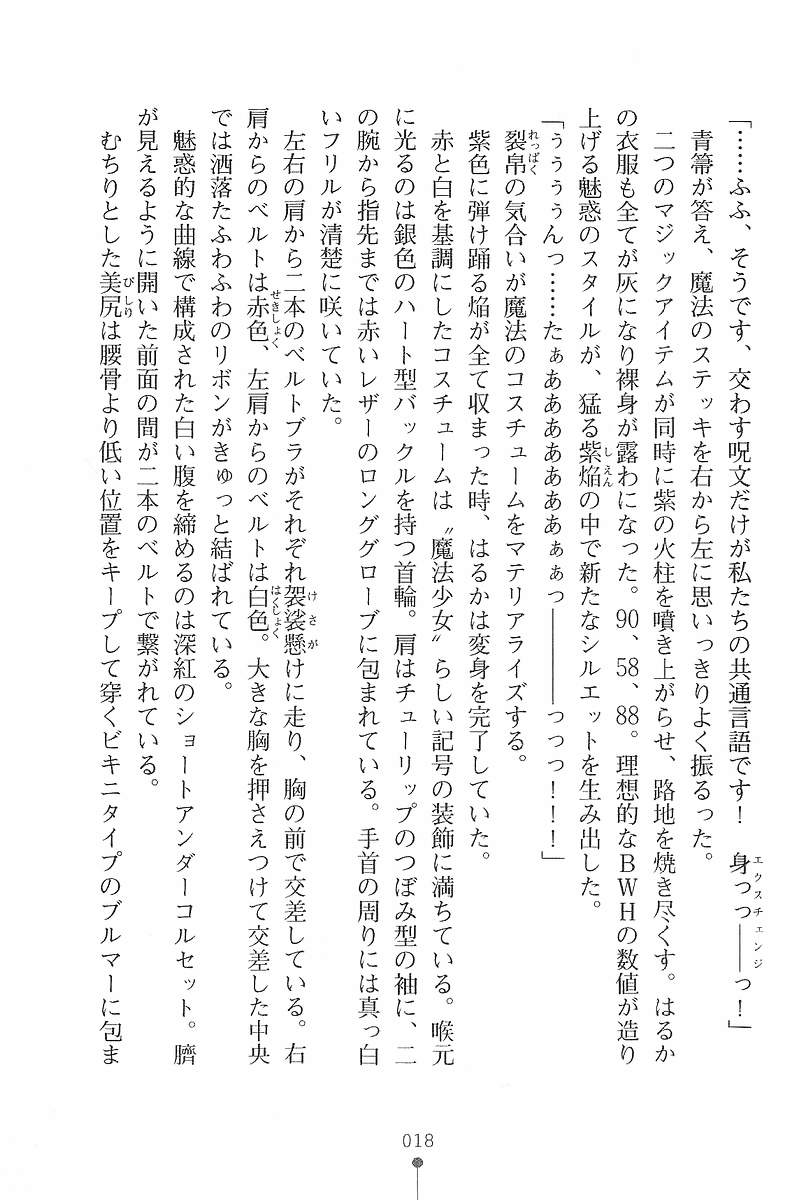 「……ふふ、そうです、交わす呪文だけが私たちの共通言語です！　身っっ――っ！」
エクスチェンジ
　青箒が答え、魔法のステッキを右から左に思いっきりよく振るった。
　二つのマジックアイテムが同時に紫の火柱を噴き上がらせ、路地を焼き尽くす。はるか
の衣服も全てが灰になり裸身が露わになった。90、58、88。理想的なＢＷＨの数値が造り
上げる魅惑のスタイルが、猛る紫焔の中で新たなシルエットを生み出した。
しえん
「うぅぅぅんっ……たぁああああああああぁぁっ――――っっっ！！！」
　裂帛の気合いが魔法のコスチュームをマテリアライズする。
れっぱく
　紫色に弾け踊る焔が全て収まった時、はるかは変身を完了していた。
　赤と白を基調にしたコスチュームは〝魔法少女〟らしい記号の装飾に満ちている。喉元
に光るのは銀色のハート型バックルを持つ首輪。肩はチューリップのつぼみ型の袖に、二
の腕から指先までは赤いレザーのロンググローブに包まれている。手首の周りには真っ白
いフリルが清楚に咲いていた。
　左右の肩から二本のベルトブラがそれぞれ袈裟懸けに走り、胸の前で交差している。右
けさが
肩からのベルトは赤色、左肩からのベルトは白色。大きな胸を押さえつけて交差した中央
せきしょく
はくしょく
では洒落たふわふわのリボンがきゅっと結ばれている。
　魅惑的な曲線で構成された白い腹を締めるのは深紅のショートアンダーコルセット。臍
が見えるように開いた前面の間が二本のベルトで繋がれている。
　むちりとした美尻は腰骨より低い位置をキープして穿くビキニタイプのブルマーに包ま
びしり
018